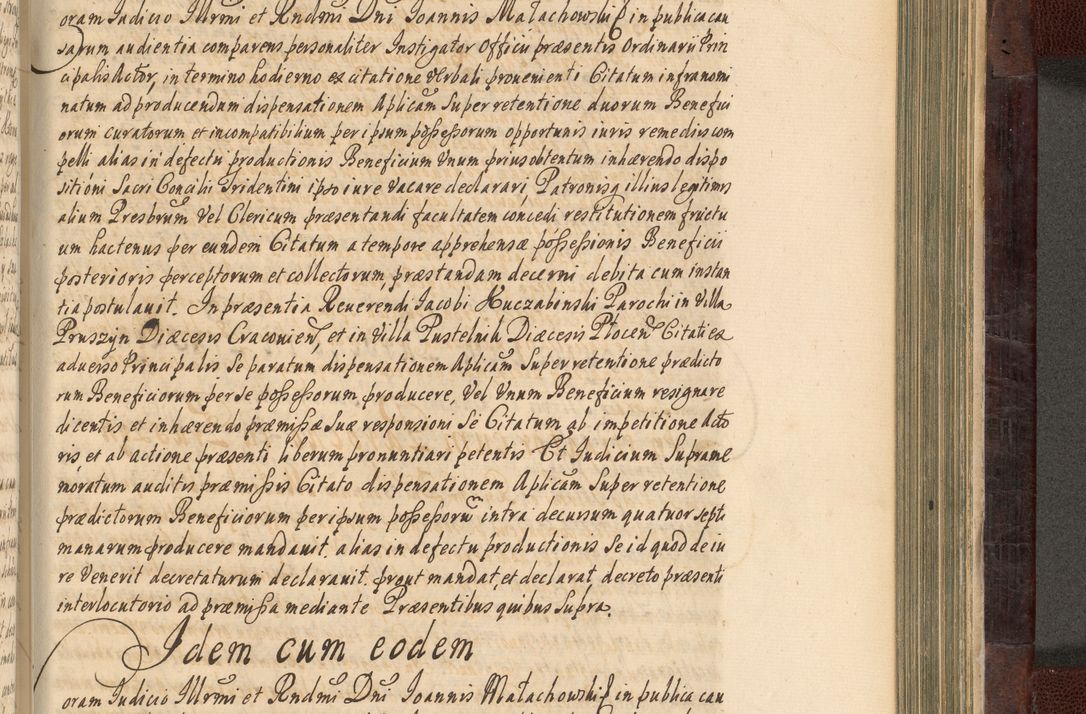 oram Iudicio Illrmi et Rndmi Dni Ioannis Małachowski in publica cau
sarum audientia comparens personaliter Instigator Officii præsentis Ordinarii Prin
cipalis Actor, in termino hodierno ex citatione Verbali provenienti Citatum infranomi
natum ad producendum dispensationem Aplicam Super retentione duorum Benefici
orum curatorum et incompatibilium per ipsum possessorum opportunis iuris remediis com
pelli alias in defectu productionis Beneficium Unum prius obtentum inhærendo dispo
sitioni Sacri Concilii Tridentini ipso iure Vacare declarari, Patronisq illius legitimis
alium Presbrum Vel Clericum præsentandi facultatem concedi restitutionem fructu
um hactenus per eundem Citatum a tempore apprehensæ possessionis Beneficii
posterioris perceptorum et collectorum, præstandam decerni debita cum instan
tia postulavit. In præsentia Reverendi Iacobi Kuczabinski Parochi in Villa
Pruszyn Diæcesis Cracovien, et in Villa Pustelnik Diæcesis Plocen Citati ex
adverso Principalis Se paratum dispensationem Aplicam Super retentione prædicto
rum Beneficiorum per se possessorum producere, Vel Unum Beneficium resignare
dicentis et inhærendo præmissæ Suæ responsioni Se Citatum ab impetitione Acto
ris, et ab actione præsenti liberum pronuntiari petentis Et Iudicium Suprame
moratum auditis præmissis Citato dispensationem Aplicam Super retentione
prædictorum Beneficiorum per ipsum possessorum intra decursum quatuor septi
manarum producere mandavit, alias in defectu productionis Se id quod de iu
re Venerit decretaturum declaravit. prout mandat, et declarat decreto præsenti
interlocutorio ad præmissa mediante Præsentibus quibus Supra.
Idem cum eodem
oram Iudicio Illrmi et Rndmi Dni Ioannis Małachowski in publica cau